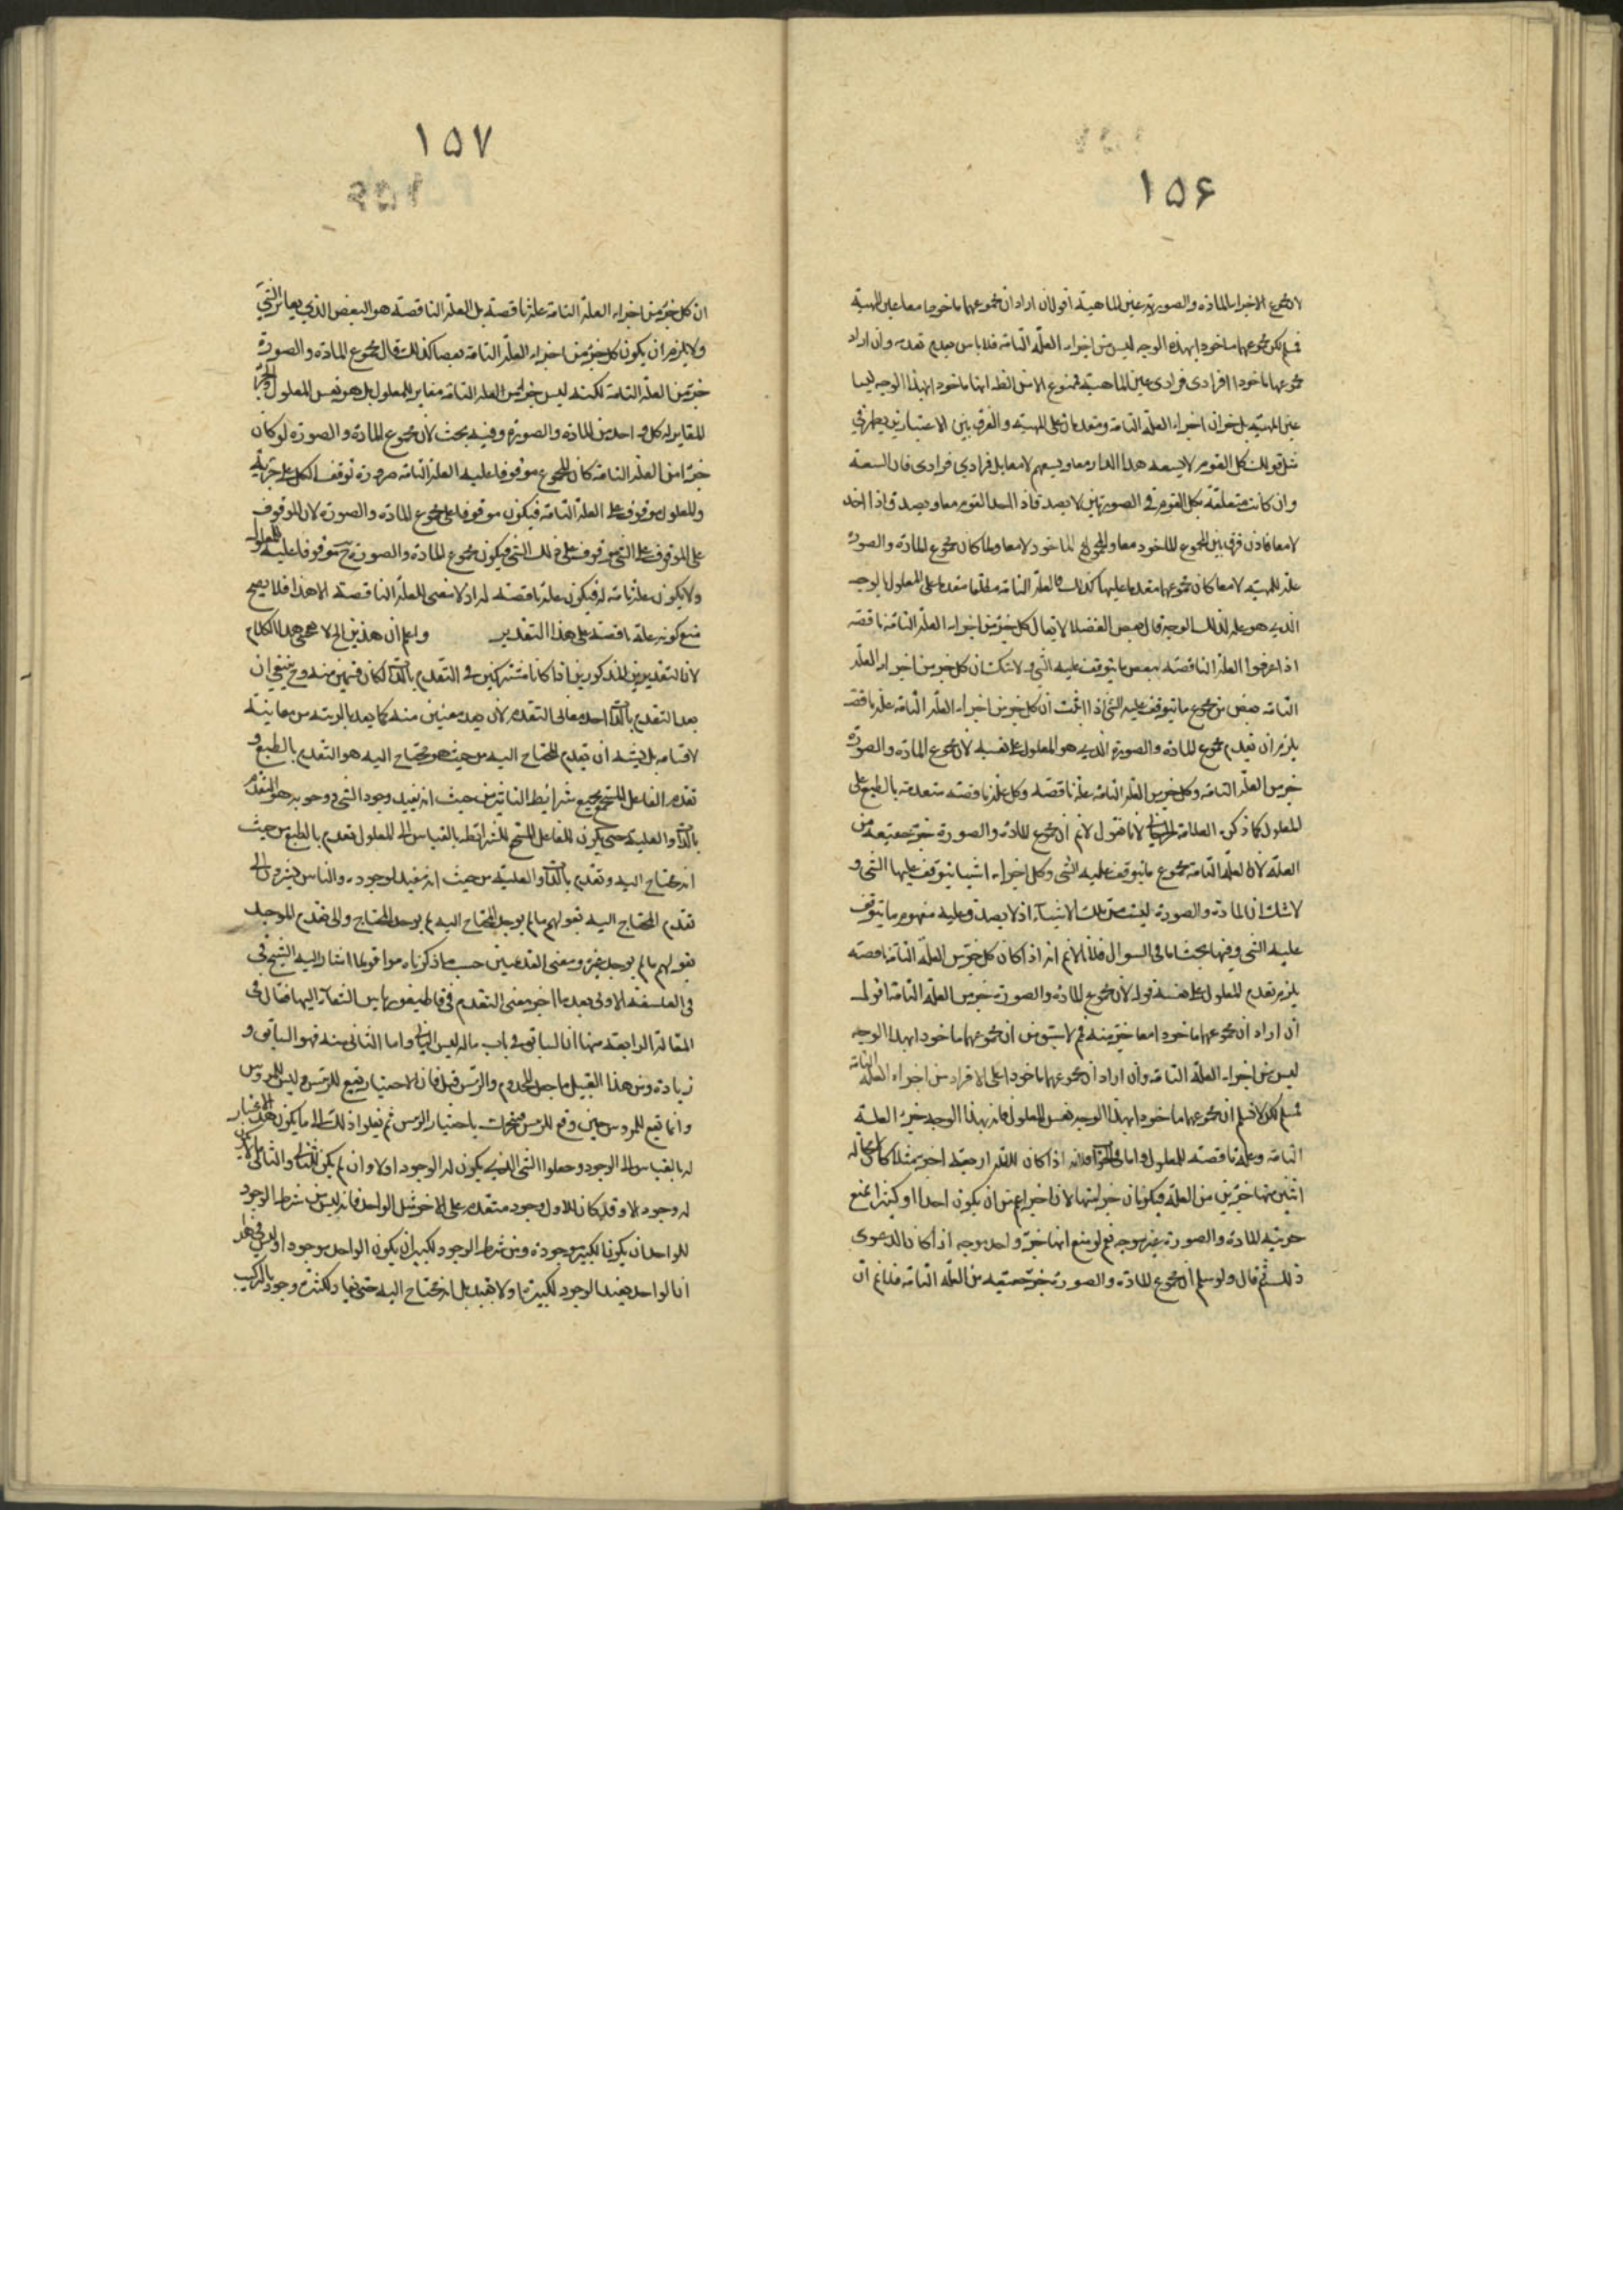 ١٥۶
لان مجموع الاجزاء المادية والصورية عين الماهية اقول ان اراد ان مجموعهما ماخوذا معا عين المهية
فمسلم لكن مجموعهما ماخوذا بهذه الوجه ليس من اجزاء العلة التامة فلا باس بعدم تقدمه وان اراد
مجموعهما ماخوذا افرادى فرادى عين الماهية فممنوع اذ من انهما ماخوذا بهذا الوجه ليسا
عين المهية بل جزآن اجزاء العلة التامة ومتقدمان على المهية والفرق بين الاعتبارين يظهر في
مثل قولك كل القوم لا يسعه هذا الدار معا ويسعهم لا معا بل فرادي فرادى فان السعة
وان كانت متعلقة بكل القوم في الصورتين لا يصدق اذا اخذ القوم معا ويصدق اذا اخذ
لا معا فاذن فرق بين المجموع الماخوذ معا والمجموع الماخوذ لا معا ولما كان مجموع المادة والصورة
علة للمهية لا معا كان مجموعهما متقدما عليها كذلك فالعلة التامة مطلقا متقدمة على المعلول بالوجه
الذي هو علة لذلك الوجه قال بعض الفضلا لا يقال كل جزء من اجزاء العلة التامة ناقصة
اذ اعرفوا العلة الناقصة ببعض ما يتوقف عليه الشيء ولا شك ان كل جزء من اجزاء العلة
التامة بعض من مجموع ما يتوقف عليه الشيء اذا ثبت ان كل جزء من اجزاء العلة التامة علة ناقصة
يلزم ان تقدم مجموع المادة والصورة الذي هو المعلول على نفسه لان مجموع المادة والصورة
جزء من العلة التامة وكل جزء من العلة التامة علة ناقصة وكل علة ناقصة متقدمة بالطبع على
المعلول كما ذكره العلامة لانا نقول لا نم ان مجموع المادة والصورة جزء حقيقة من
العلة لان العلة التامة مجموع ما يتوقف عليه الشي وكل اجزاء اشيا يتوقف عليها الشي و
لا شك ان المادة والصورة ليست من تلك الاشياء اذ لا يصدق عليه مفهوم ما يتوقف
عليه الشي وفيها بحث اما في السوال فلانا لا نم انه اذا كان كل جزء من العلة التامة ناقصة
يلزم تقدم المعلول على نفسه قوله لان مجموع المادة والصورة جزء من العلة التامة اقول
ان اراد ان مجموعهما ماخوذا معا جزء منه فم لا سبق من ان مجموعهما ماخوذا بهذا الوجه
ليس من اجزاء العلة التامة وان اراد ان مجموعهما ماخوذا على الافراد من اجزاء العلة التامة
فمسلم لكن لا نسلم ان مجموعهما ماخوذا بهذا الوجه نفس المعلول فانه بهذا الوجه جزء العلة
التامة وعلة ناقصة للمعلول واما في الجواب فلانه اذا كان للشئ اربعة اجزاء مثلا كان كل
اثنين منها جزئين من العلة فيكونان جزء منها لان اجزاء اعم من ان يكون احدا او كثيرا فمنع
جزئية المادة والصورة غير موجه نعم لو منع انها جزء واحد بوجه اذا كان الدعوى
ذلك ثم قال ولو سلم ان مجموع المادة والصورة جزء حقيقة من العلة التامة فلا نم ان
١٥٧
ان كل جزء من اجزاء العلة التامة علة ناقصة بل العلة الناقصة هو البعض الذي يغاير الشيء
ولا يلزم ان يكون كل جزء من اجزاء العلة التامة بعضا كذلك قال مجموع المادة والصورة
جزء من العلة التامة لكنه ليس جزء من العلة التامة مغاير للمعلول بل هو نفس المعلول والجزء
المغاير له كل واحد من المادة والصورة وفيه بحث لان مجموع المادة والصورة لو كان
جزا من العلة التامة كان المجموع موقوفا عليه العلة التامة ضرورة توقف الكل على جزئه
والمعلول موقوف على العلة التامة فيكون موقوفا على مجموع المادة والصورة لان الموقوف
على الموقوف على الشي موقوف على ذلك الشي فيكون مجموع المادة والصورة ح موقوفا عليه للمعلول
ولا يكون علة تامة له فيكون علة ناقصة له اذ لا معنى للعلة الناقصة الا هذا فلا يصح
منع كونه علة ناقصة على هذا التقدير واعلم ان هذين الخ لا يخفى هذا الكلام
لان التقدمين المذكورين اذا كانا مشتركين في التقدم بالذات لكان قسمين منه وح ينبغي ان
يعد التقدم بالذات احد معاني التقدم لان يعد معنيين منه كما يعد بالرتبة من معانيه
لاقسامه بل نسبة ان تقدم المحتاج اليه من حيث هو محتاج اليه هو التقدم بالطبع و
تقدم الفاعل المستجمع بجميع شرائط التاثير من حيث انه يفيد وجود الشي ووجوبه هو التقدم
بالذات والعلية حتى يكون للفاعل المستجمع للشرائط بالقياس الى المعلول تقدم بالطبع من حيث
انه محتاج اليه وتقدم بالذات والعلية من حيث انه مفيد لوجوده والناس يشيرون الى
تقدم المحتاج اليه بقولهم ما لم يوجد المحتاج اليه لم يوجد المحتاج والى تقدم الموجد
بقولهم ما لم يوجد غيره ومعنى التقدمين حسب ما ذكرناه موافق لما اشار اليه الشيخ في
في الفلسفة الاولى بعد ما اخر معنى التقدم في قاطيغورياس الشفاء اليها فقال في
المقالة الرابعة منها ان السابق في باب ماله ليس للتالي واما الثاني منه فهو السابق و
زيادة ومن هذا القبيل ما جعل المخدوم والرئيس قبل فان الاختيار يقع للرئيس وليس للمرؤس
وانما يقع للمرؤس حين وقع للرئيس فيتحرك باختيار الرئيس ثم نقلوا ذلك الى ما يكون هذا الاعتبار
له بالقياس الى الوجود وجعلوا الشي الذي يكون له الوجود اولا وان لم يكن للثاني والثاني لا يكون
له وجود الا وقد كان للاول وجود متقدم على الاخر مثل الواحد فانه ليس من شرط الوجود
للواحد ان يكون الكثير موجودة ومن شرط الوجود للكثير ان يكون الواحد موجودا وليس في هذا
ان الواحد يفيد الوجود للكثرة اولا يفيد بل انه محتاج اليه حتى يفاد للكثرة وجود بالتركيب